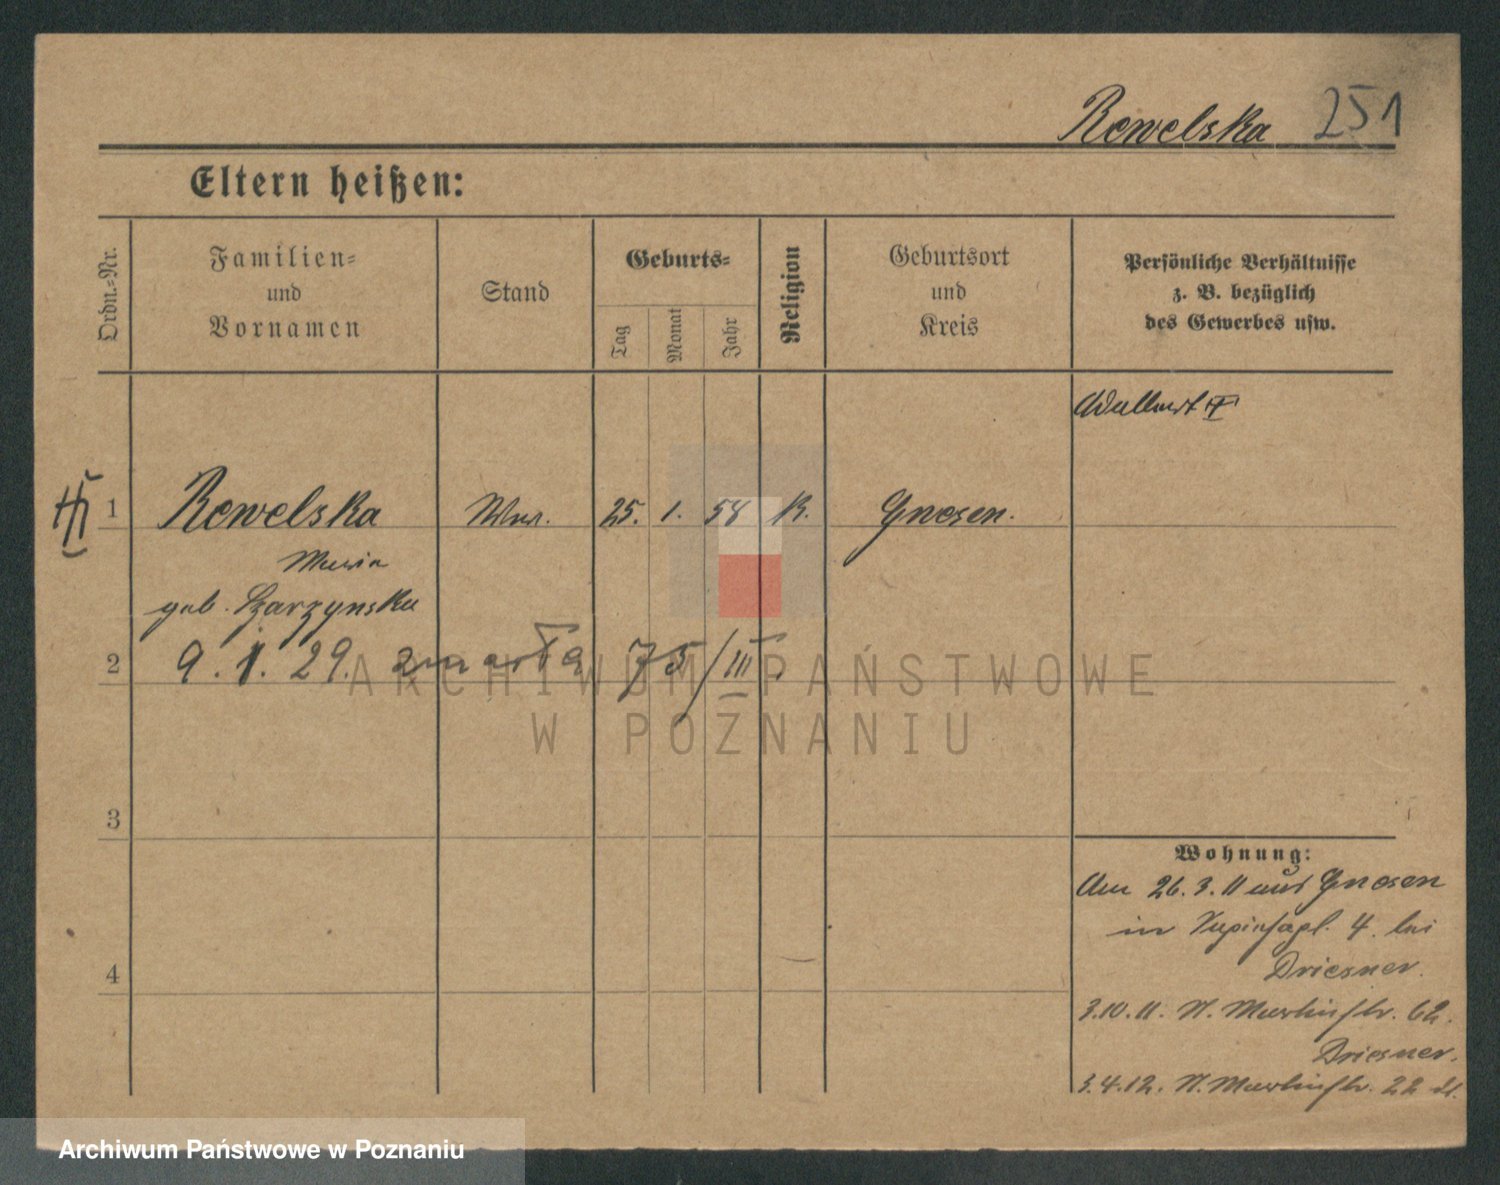 Rewelska 251
Eltern heißen:
Ordn.-Nr.
Familien-
und
Vornamen
Stand
Geburts-
Tag
Monat
Jahr
Religion
Geburtsort
und
Kreis
Persönliche Verhältnisse
z. B. bezüglich
des Gewerbes usw.
1 Rewelska Ww. 25. 1. 58 K. Gnesen.
Maria
geb. Szarzynska
2 9. 1. 29. zmarła 75/III
ARCHIWUM PAŃSTWOWE
W POZNANIU
3
Wohnung:
Am 26.3.11 aus Gnesen
in 4. bei
Driesner.
4
3.10.11. St. Martinstr. 62.
Driesner.
3.4.12. St. Martinstr. 22
Archiwum Państwowe w Poznaniu